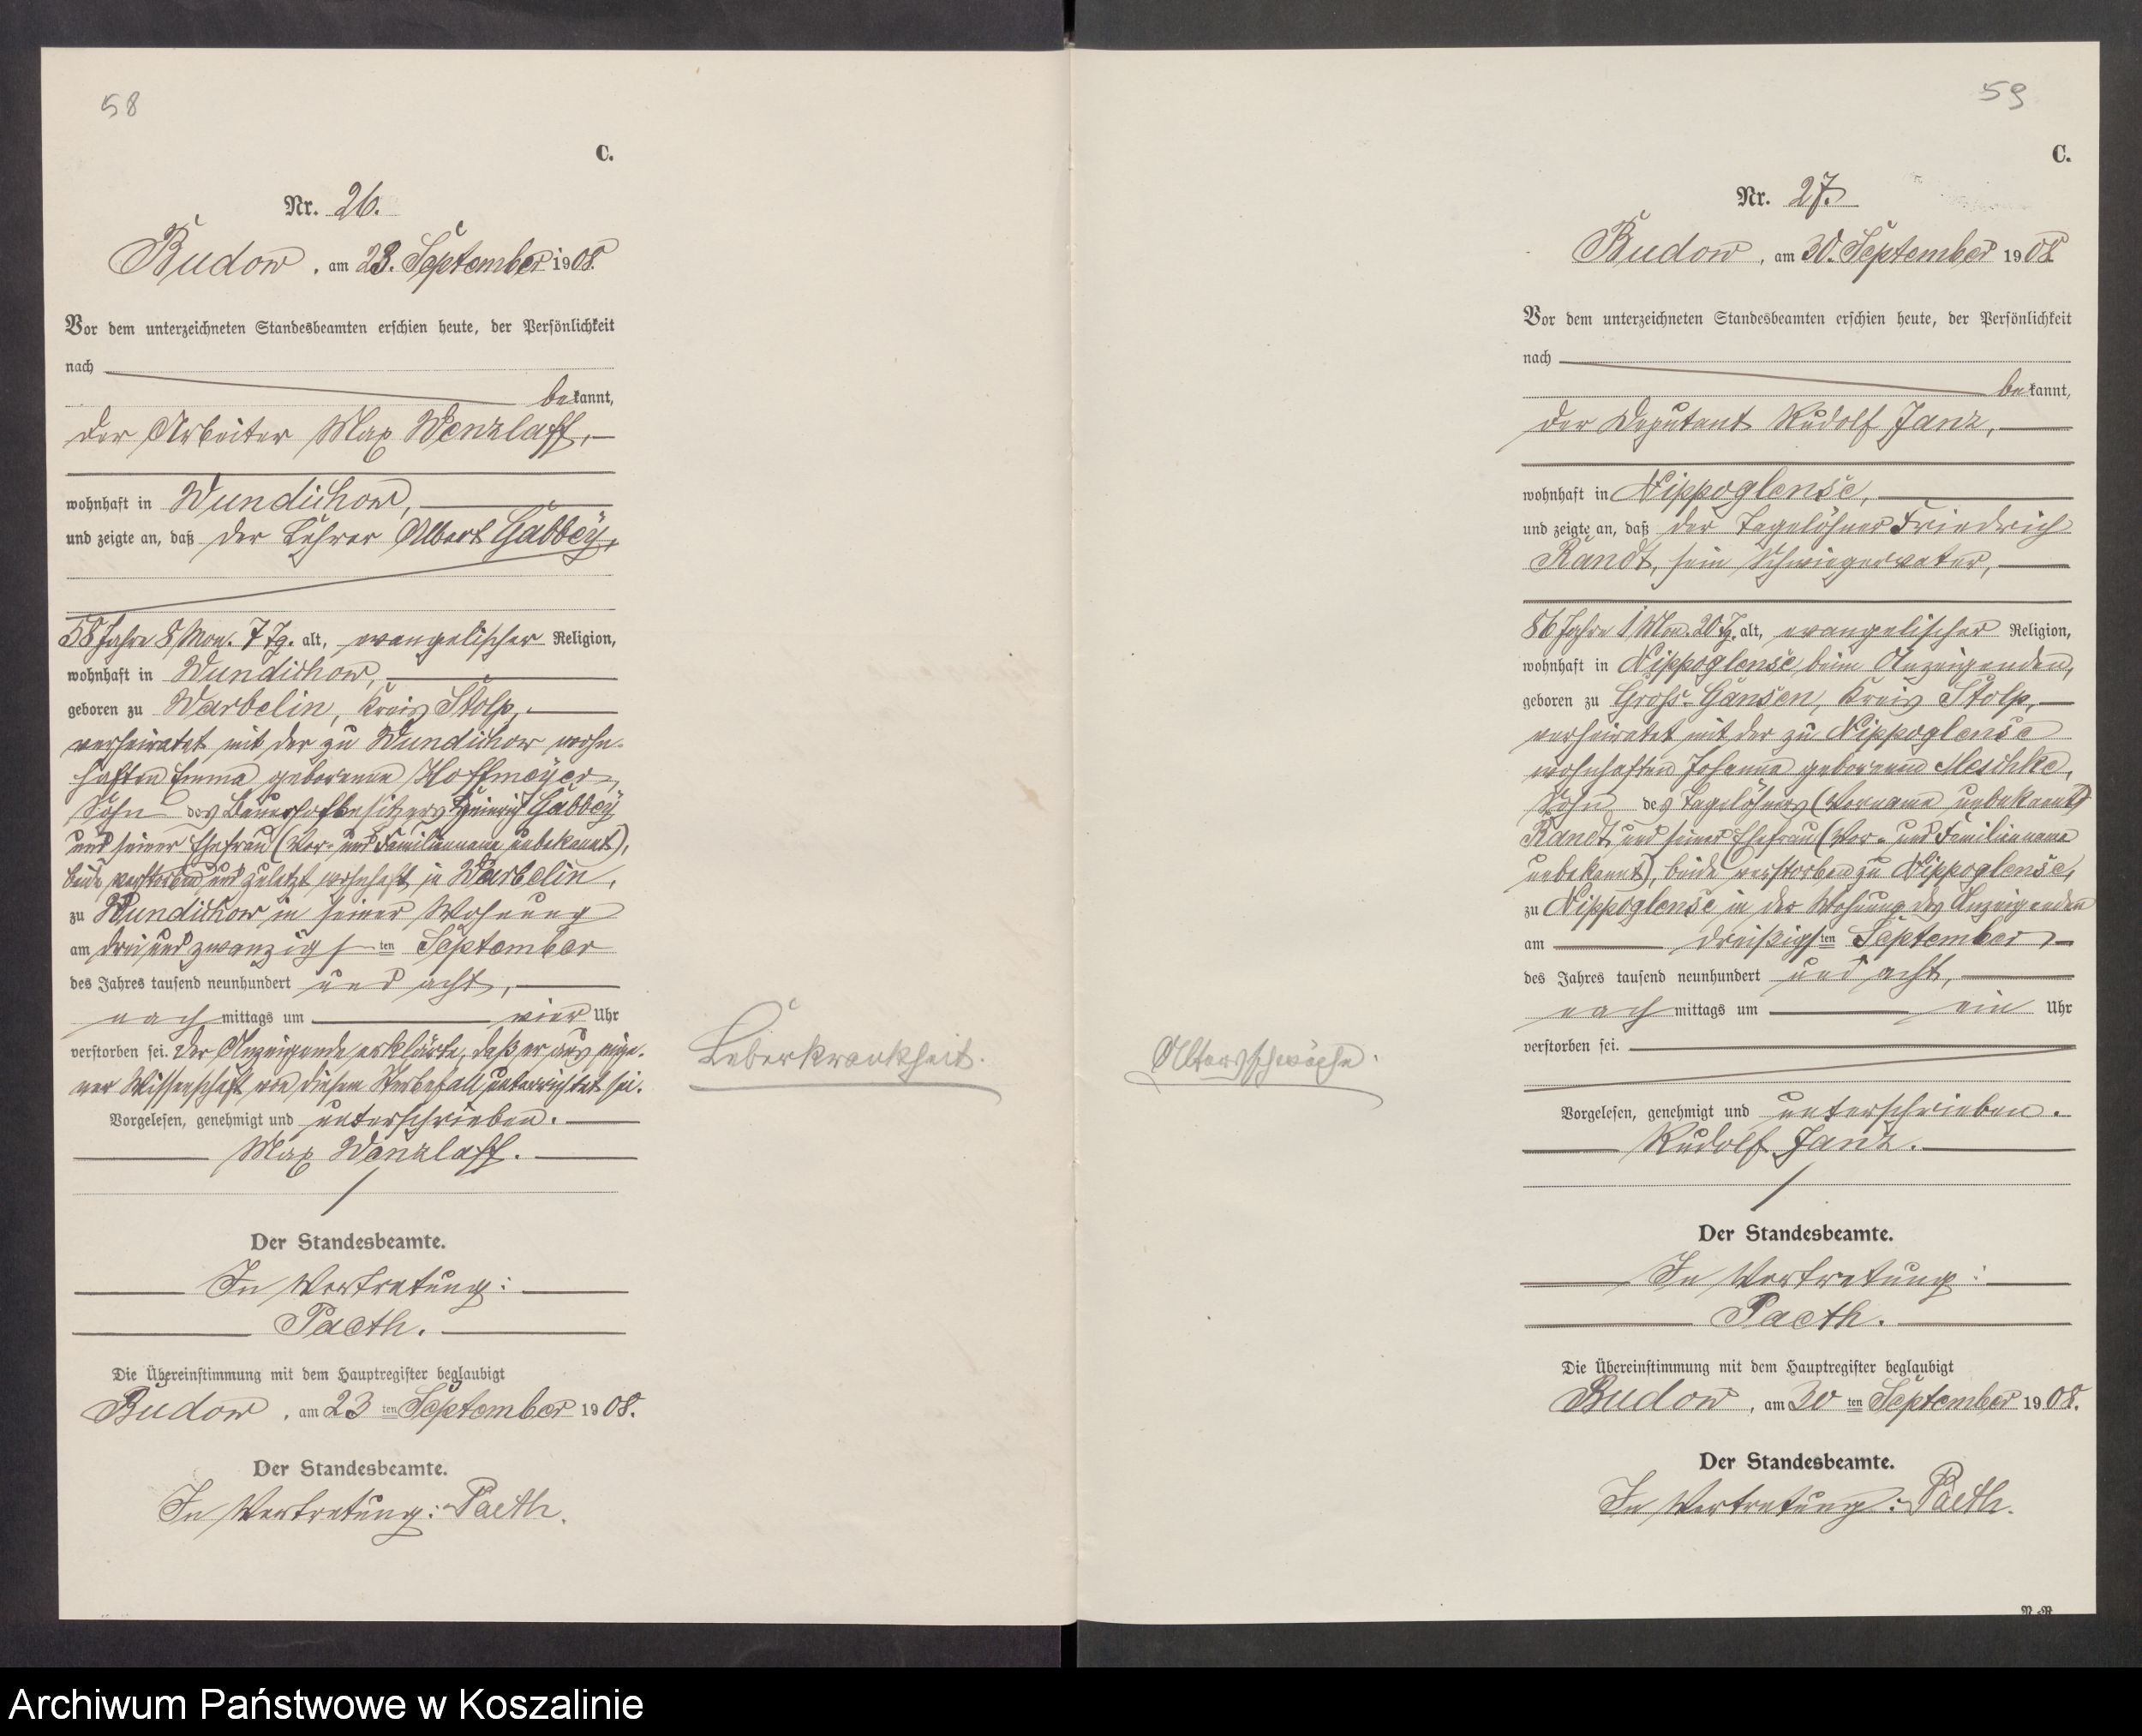 58
C.
Nr. 26.
Budow, am 23. September 1908.
Vor dem unterzeichneten Standesbeamten erschien heute, der Persönlichkeit
nach
bekannt,
der Arbeiter Max Wenzlaff,
wohnhaft in Wundichow,
und zeigte an, daß der Lehrer Albert Gabbey,
58 Jahre 8 Mon. 7 Tg. alt, evangelischer Religion,
wohnhaft in Wundichow,
geboren zu Warbelin, Kreis Stolp,
verheiratet mit der zu Wundichow wohn-
haften Emma geborenen Hoffmeyer,
Sohn des Bauerhofbesitzers Heinrich Gabbey
und seiner Ehefrau (Vor- und Familienname unbekannt),
beide verstorben und zuletzt wohnhaft in Warbelin,
zu Wundichow in seiner Wohnung
am drei und zwanzigsten September
des Jahres tausend neunhundert und acht,
nachmittags um vier Uhr
verstorben sei. Der Anzeigende erklärte, daß er aus eige-
ner Wissenschaft von diesem Sterbefall unterrichtet sei.
Vorgelesen, genehmigt und unterschrieben.
Max Wenzlaff.
Der Standesbeamte.
In Vertretung:
Paeth.
Die Übereinstimmung mit dem Hauptregister beglaubigt
Budow, am 23ten September 1908.
Der Standesbeamte.
In Vertretung: Paeth.
Leberkrankheit.
59
C.
Nr. 27.
Budow, am 30. September 1908.
Vor dem unterzeichneten Standesbeamten erschien heute, der Persönlichkeit
nach
bekannt,
der Deputant Rudolf Janz,
wohnhaft in Nippoglense,
und zeigte an, daß der Tagelöhner Friedrich
Randt, sein Schwiegervater,
86 Jahre 1 Mon. 20 Tg. alt, evangelischer Religion,
wohnhaft in Nippoglense beim Anzeigenden,
geboren zu Groß-Gansen, Kreis Stolp,
verheiratet mit der zu Nippoglense
wohnhaften Johanne geborenen Meschke,
Sohn des Tagelöhners (Vorname unbekannt)
Randt und seiner Ehefrau (Vor- und Familienname
unbekannt), beide verstorben zu Nippoglense,
zu Nippoglense in der Wohnung des Anzeigenden
am dreißigsten September
des Jahres tausend neunhundert und acht,
nachmittags um ein Uhr
verstorben sei.
Vorgelesen, genehmigt und unterschrieben.
Rudolf Janz.
Der Standesbeamte.
In Vertretung:
Paeth.
Die Übereinstimmung mit dem Hauptregister beglaubigt
Budow, am 30ten September 1908.
Der Standesbeamte.
In Vertretung: Paeth.
Altersschwäche.
Archiwum Państwowe w Koszalinie